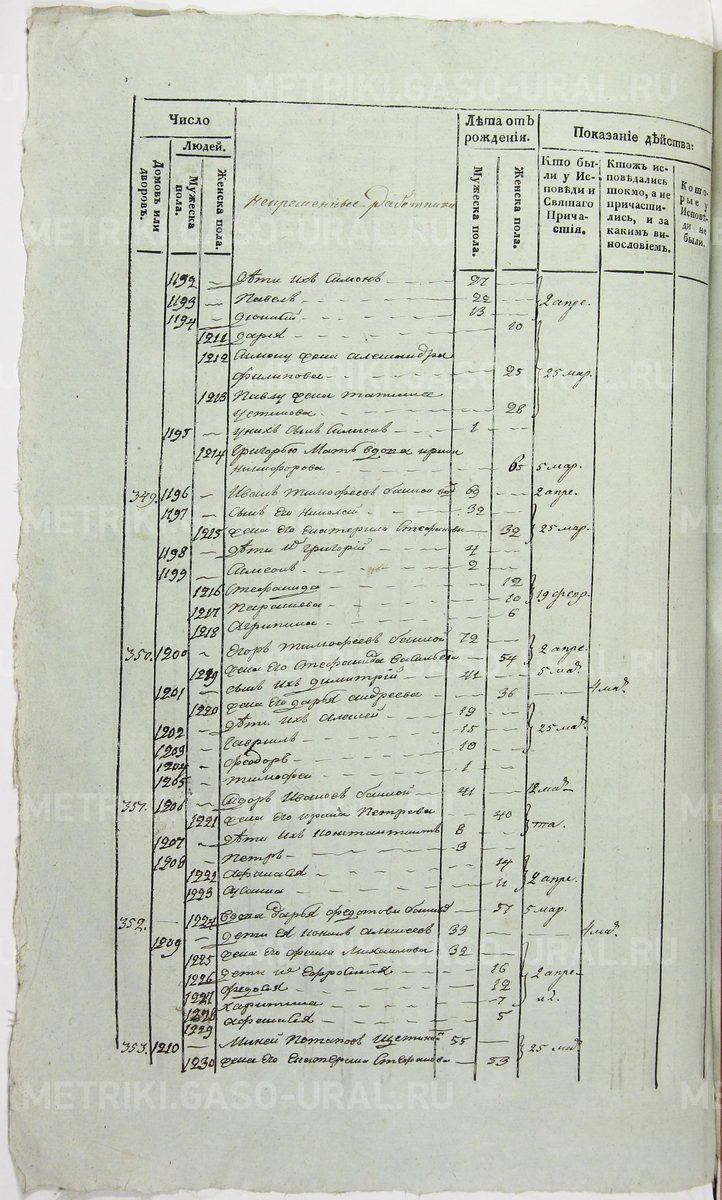 METRIKI.GASO-URAL.RU
Число
Людей.
Домовъ или дворовъ.
Мужеска пола.
Женска пола.
непременные работники
Лѣта отъ рожденія.
Мужеска пола.
Женска пола.
Показаніе дѣйства:
Кто были у Исповѣди и Святаго Причастія.
Ктожъ исповѣдались токмо, а не причастились, и за какимъ винословіемъ.
Которые у Исповѣди не были.
1192 Дѣти ихъ Симонъ 27
1193 Павелъ 22 2 апре.
1194 13
1211 дарья 20
1212 Симону жена александра
филипова 25 25 мар.
1213 Павлу жена татиана
устинова 28
1195 у нихъ сынъ Симеонъ 1
1214 Григорью Мать вдова ирина
никифорова 65 5 мар.
349. 1196 Иванъ тимофеевъ 69 2 апре.
1197 Сынъ его Николай 32
1215 жена его екатерина Стефанова 32 25 мар.
1198 Дѣти их григорій 4
1199 Симеонъ 2
1216 Стефанида 12
1217 Парасковья 10 19 февр.
1218 Акрипина 6
350. 1200 Егоръ тимофеевъ 72
1219 жена его Стефанида Васильева 54 2 апре.
1201 сынъ ихъ димитрій 41 5 мар.
1220 жена его дарья андреева 36 4 мар.
1202 дѣти ихъ алексей 19
1203 Гавриилъ 15 25 мар.
1204 феодоръ 10
1205 тимофей 1
351. 1206 Сидоръ Ивановъ 41 2 мар.
1221 жена его ирина Петрова 40
1207 дѣти ихъ константинъ 8
1208 Петръ 3
1222 Афанасья 14
1223 11 2 апре.
352. 1224 Вдова дарья федотова 57 5 мар.
1209 дети ея алексеевъ 33 4 мар.
1225 жена его фекла Михайлова 32
1226 дети их евфросиния 16
1227 федосья 12 2 апре.
1228 харитина 7
1229 5
353. 1210 Миней Потаповъ 55
1230 жена его екатерина Стефанова 53 25 мар.
METRIKI.GASO-URAL.RU